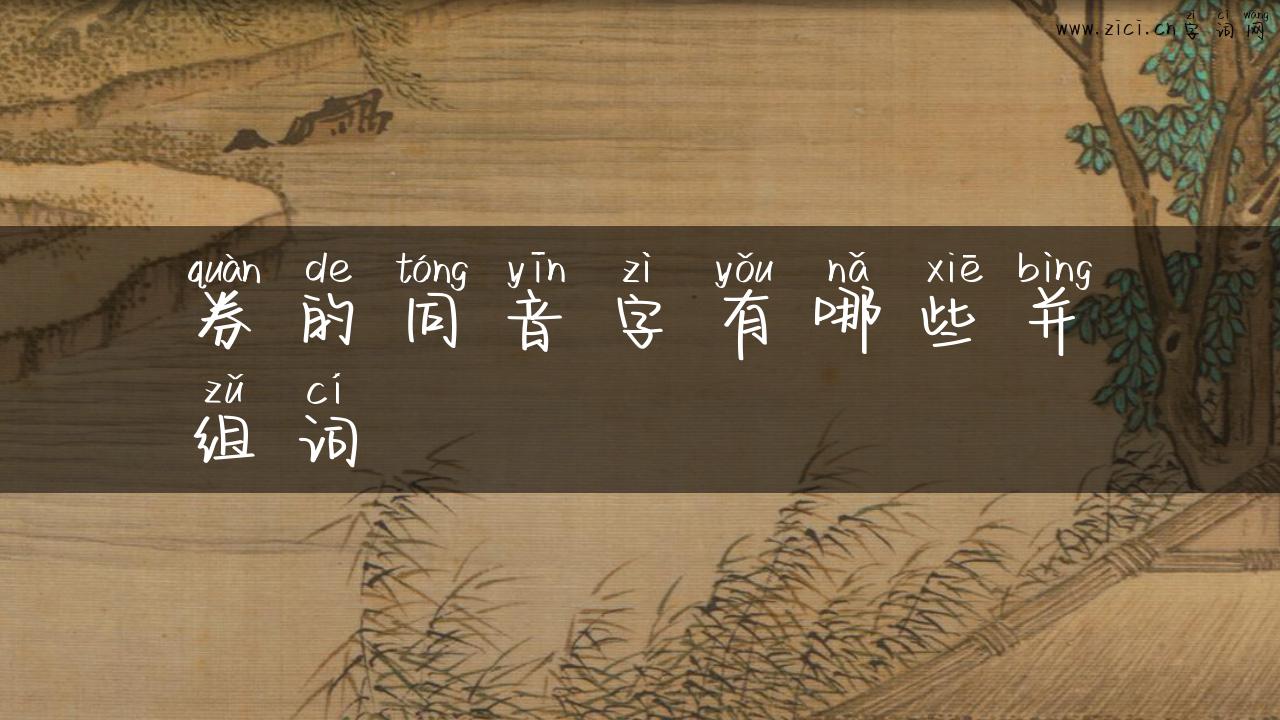 zì cí wǎng
www.zici.cn字词网
quàn de tóng yīn zì yǒu nǎ xiē bìng
券的同音字有哪些并
zǔ cí
组词